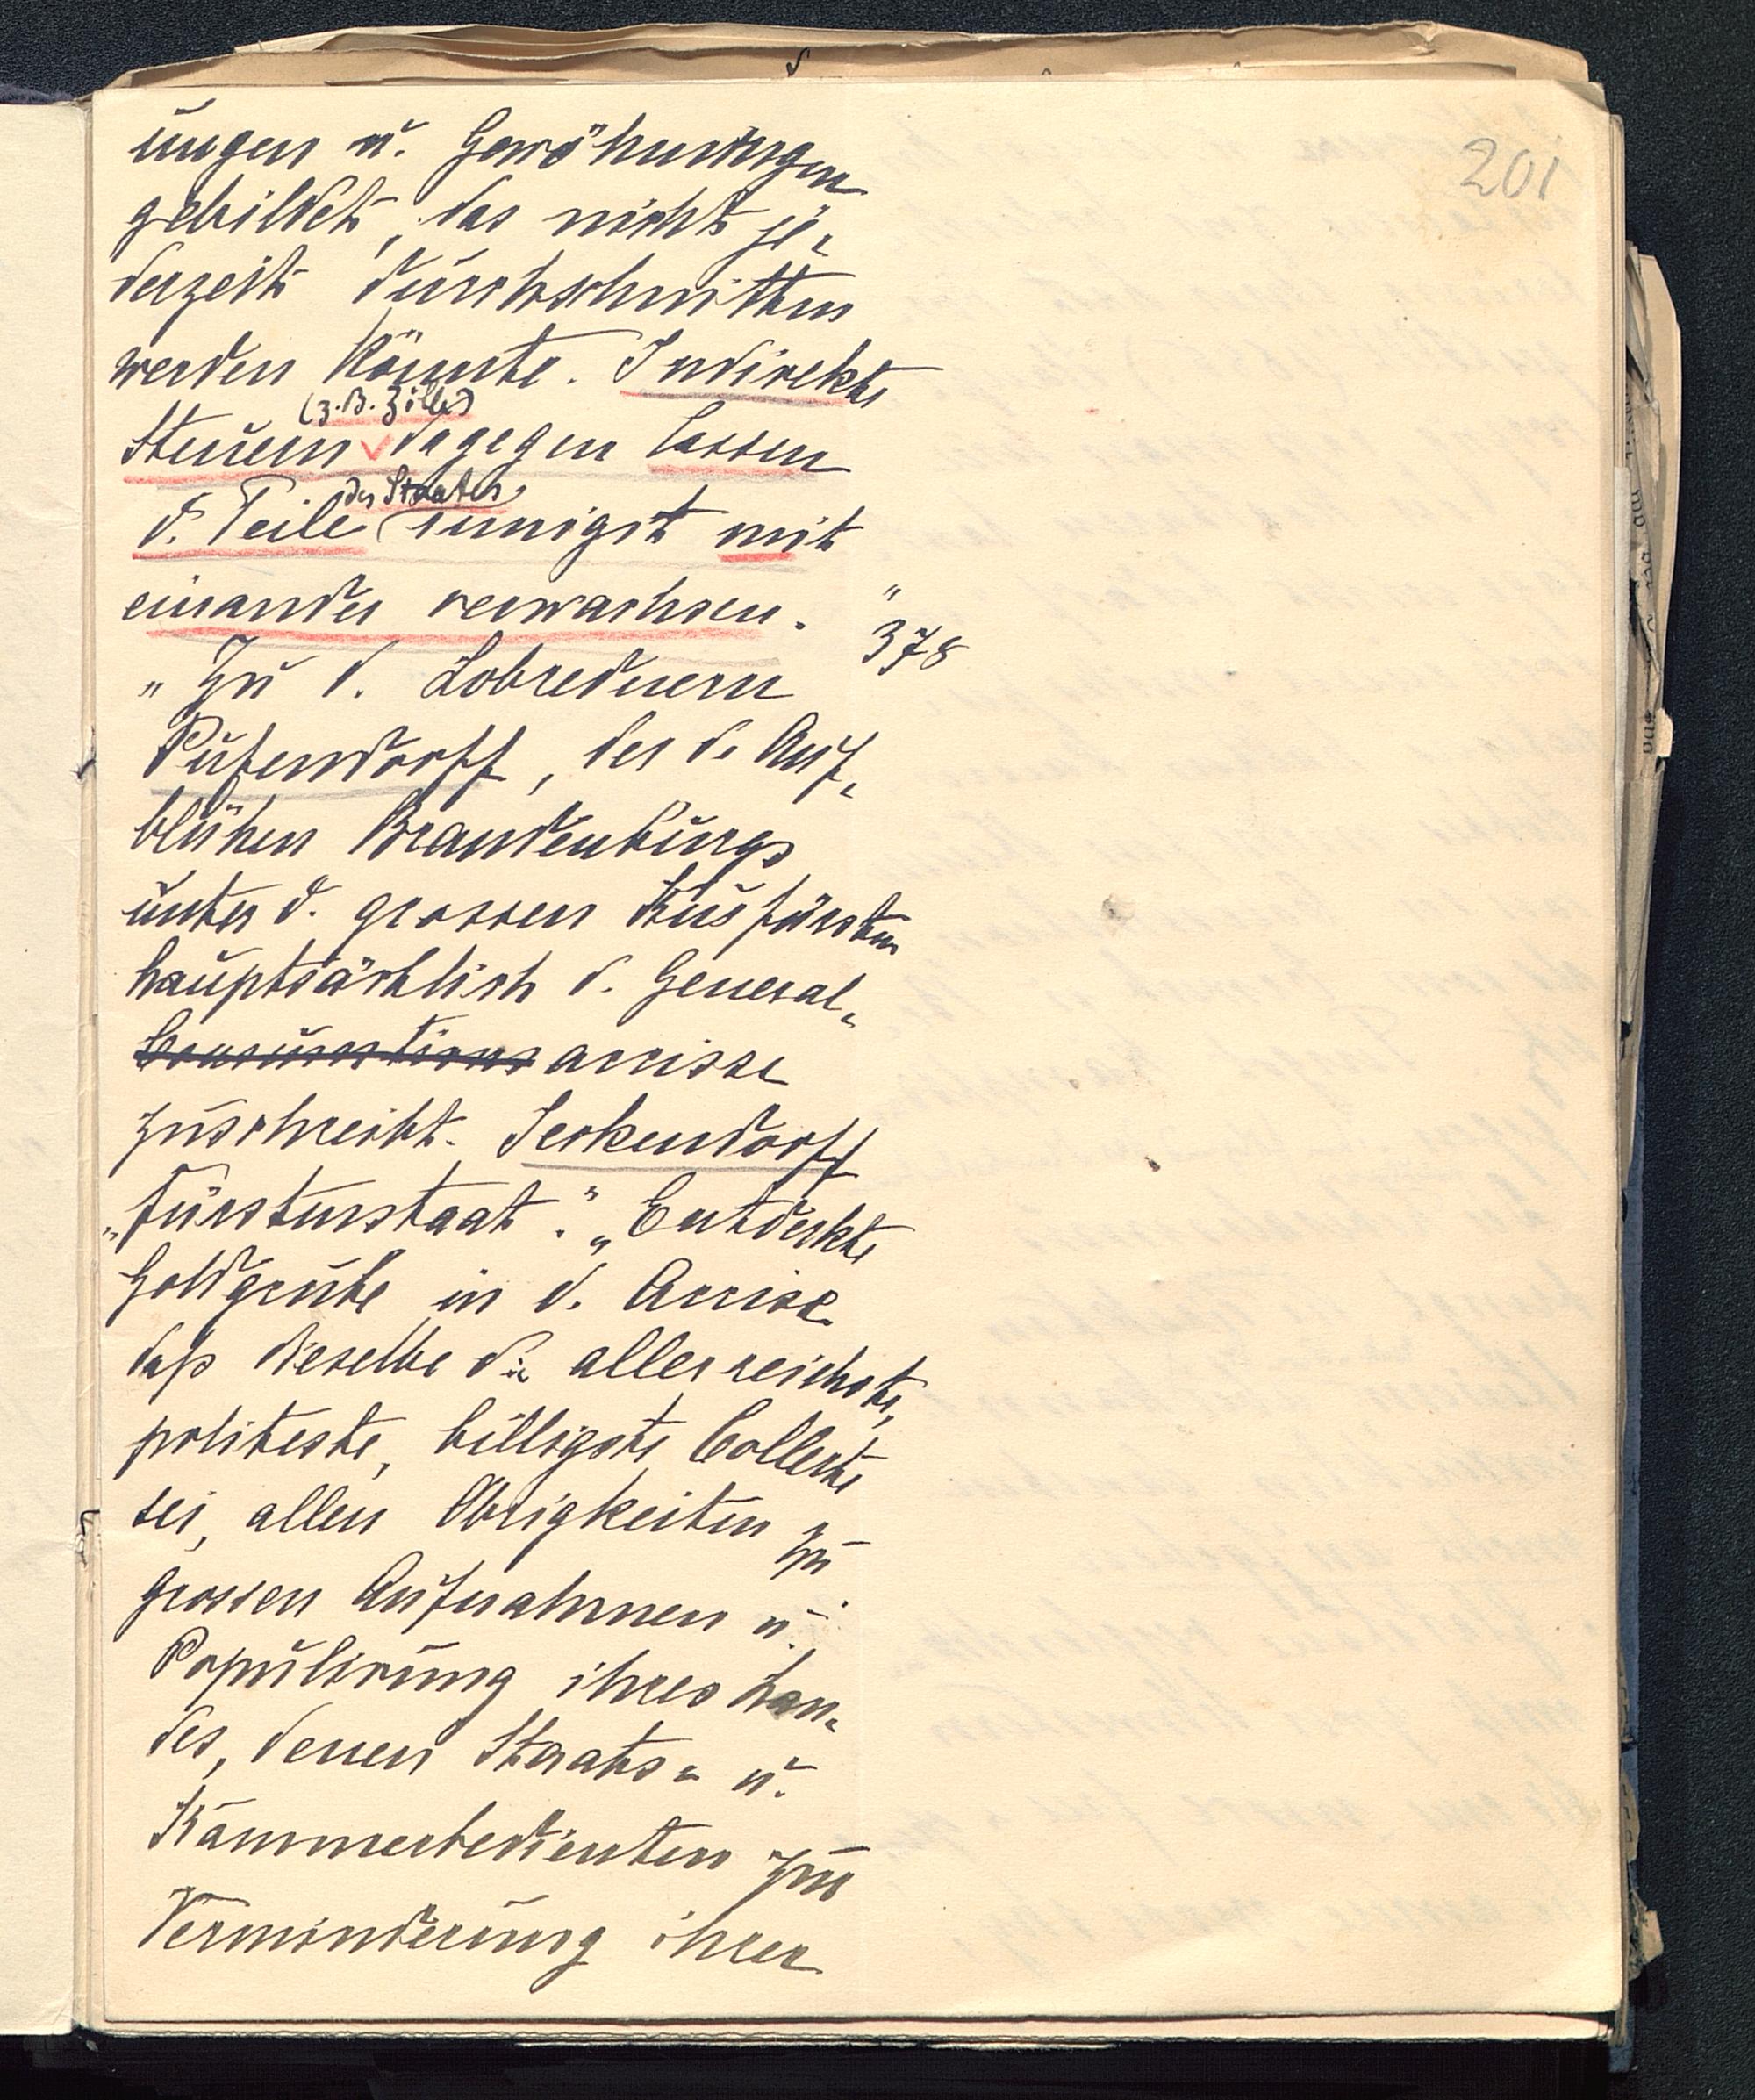 201
ungen u. Gewöhnungen
gebildet, das nicht je-
derzeit durchschnitten
werden könnte. Indirekte
(z. B. Zölle)
Steuern dagegen lassen
des Staates
d. Teile innigst mit
einander verwachsen."
378
"Zu d. Lobrednern
Pufendorff, der d. Auf-
blühen Brandenburgs
unter d. grossen Kurfürsten
hauptsächlich d. General-
accisse
zuschreibt. Seckendorff
"Fürstenstaat". "Entdeckte
Goldgrube in d. Accise
daß dieselbe die allerreichste,
politeste, billigste Collecte
sei, allen Obrigkeiten zu
grossen Aufnahmen u.
Populirung ihres Lan-
des, denen Staats- u.
Kammerbedienten zur
Verminderung ihrer